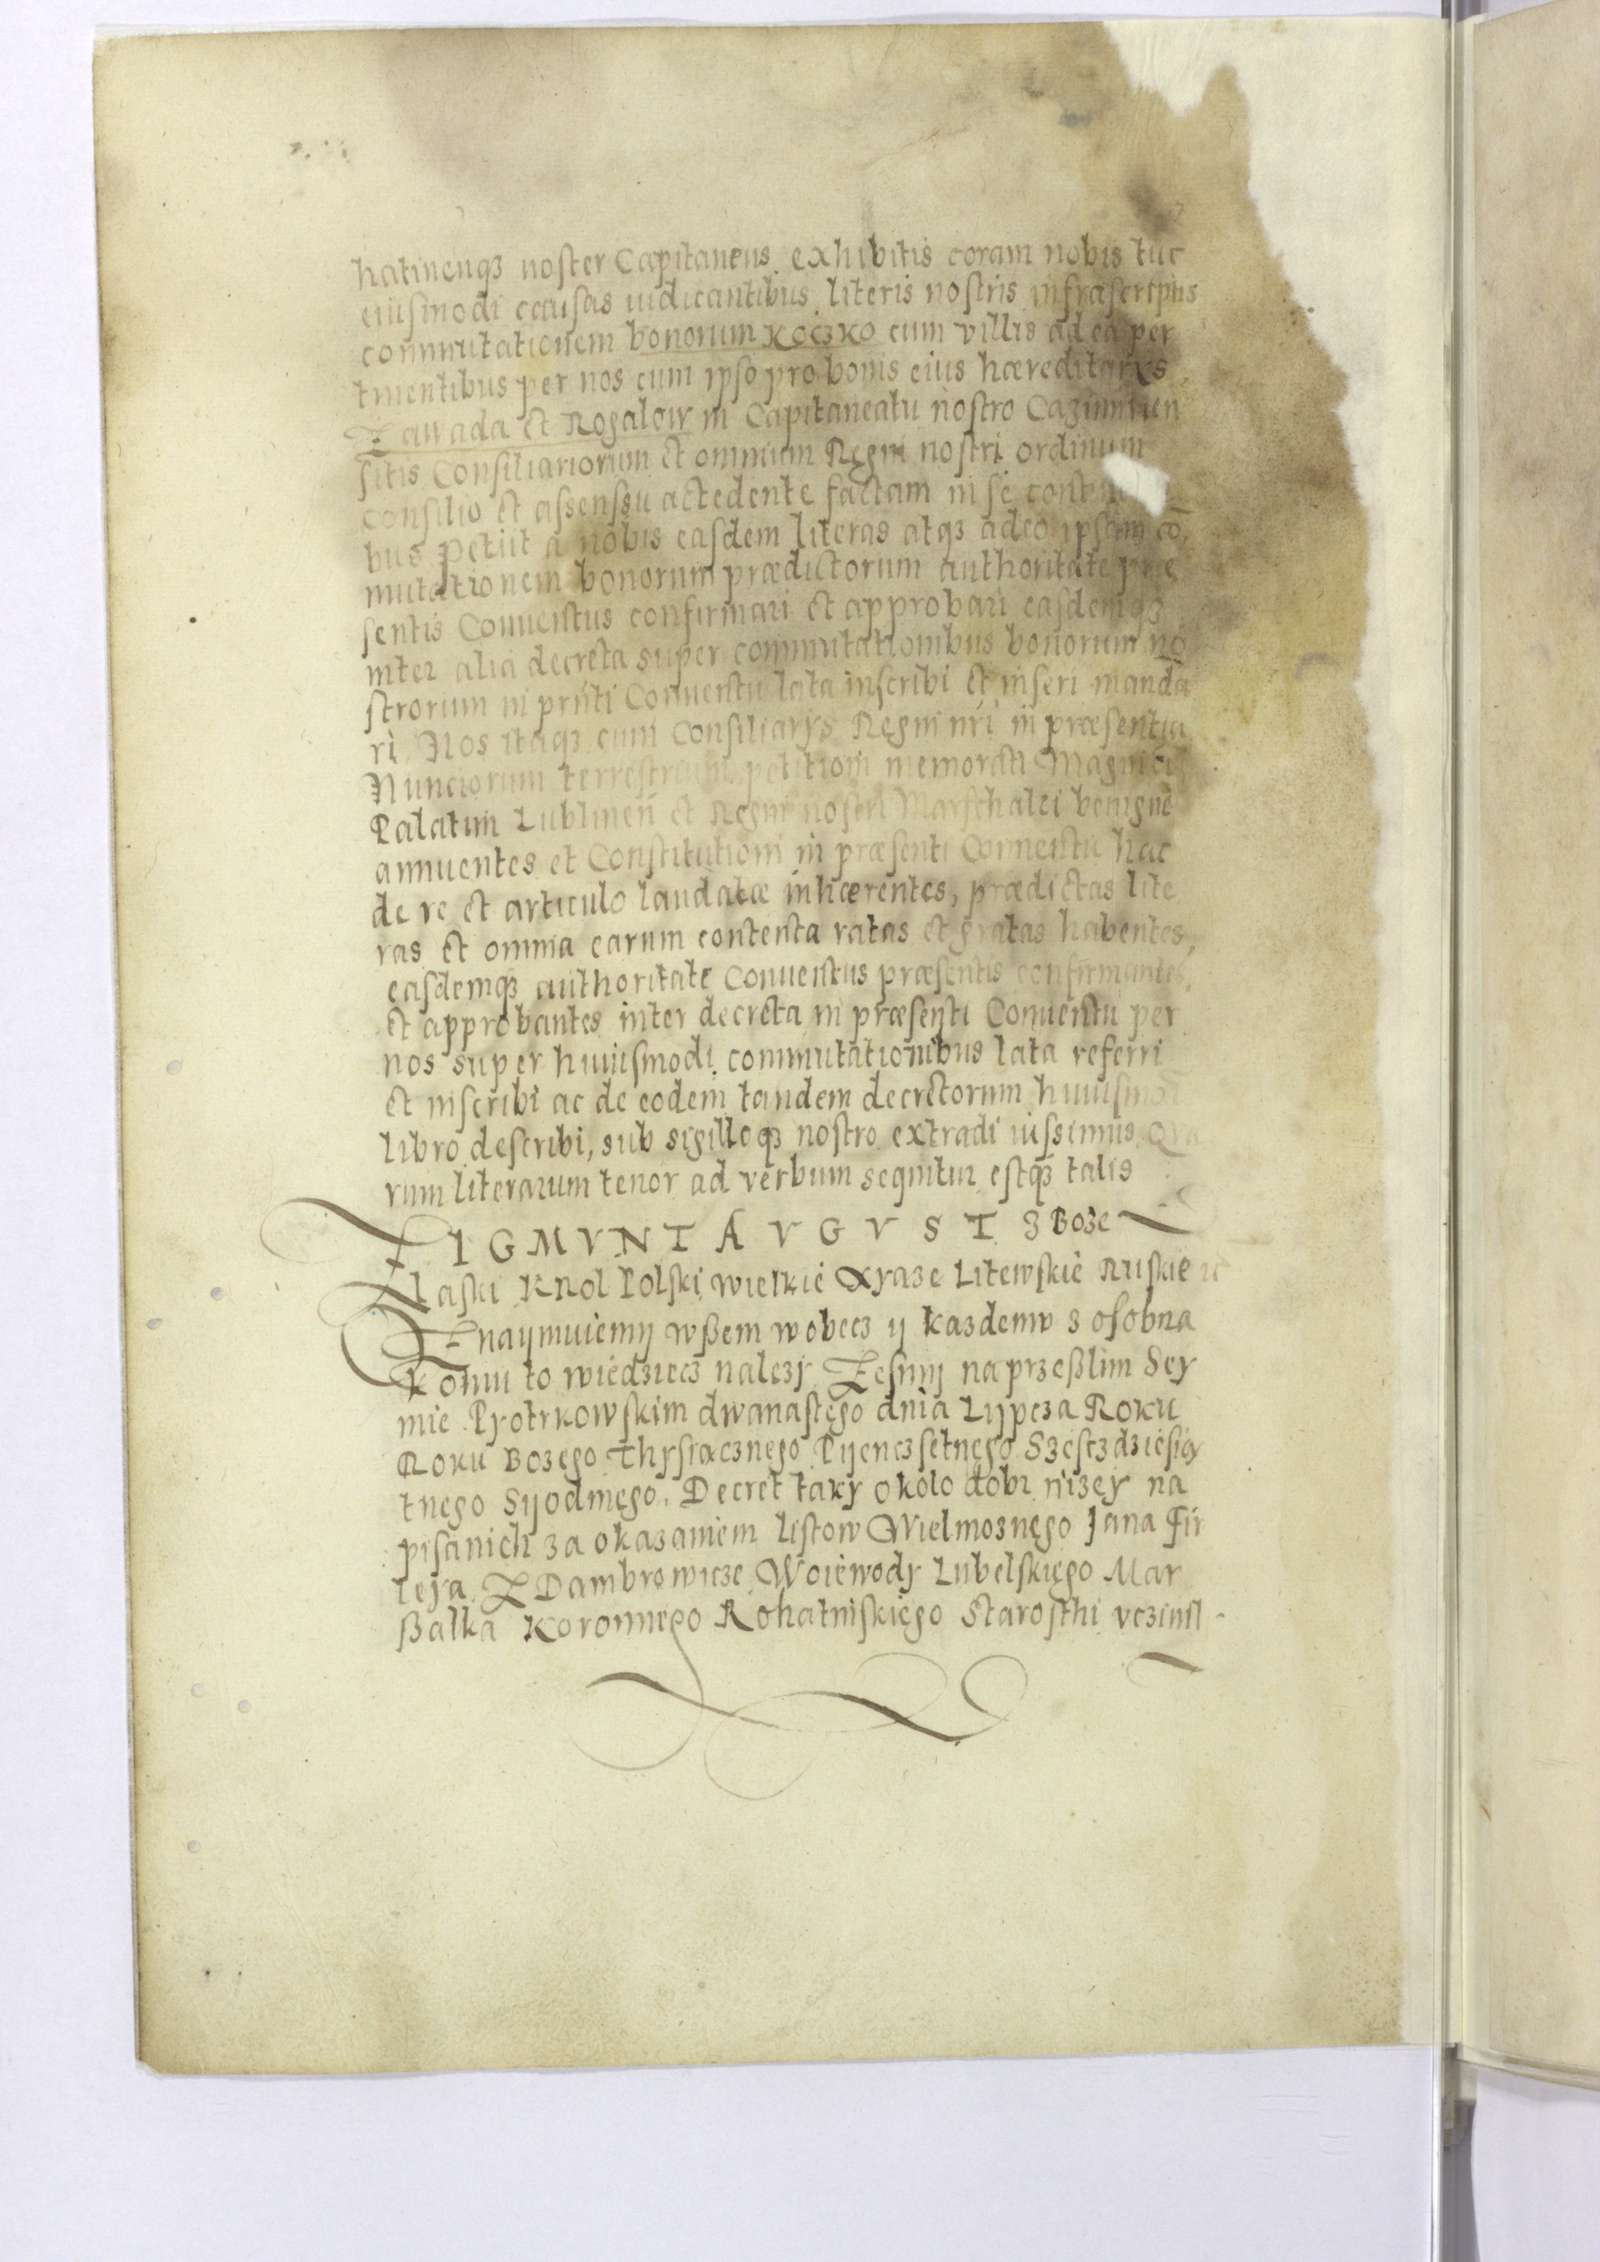 hatinenqꝫ noster Capitaneus exhibitis coram nobis tuc
eiusmodi causas iudicantibus literis nostris infrascriptis
commutationem bonorum Koczko cum villis ad ea per
tinentibus per nos cum ipso pro bonis eius hæreditarys
Zawada et Rogalow in Capitaneatu nostro Cazimirien
sitis Consiliariorum et omnium Regni nostri ordinum
consilio et assenssu accedente factam in se
bus petiit a nobis easdem literas atqꝫ adeo ipsam cō
mutationem bonorum prædictorum authoritate præ
sentis Conuentus confirmari et approbari easdemqꝫ
inter alia decreta super commutationibus bonorum no
strorum in prñti Conuentu lata inscribi et inseri manda
ri. Nos itaqꝫ cum Consiliarys Regni nri in præsentia
Nunciorum terrestrium petitioni memorati Magnifici
Palatini Lublineñ et Regni nostri Marschalci benigne
annuentes et Constitutioni in præsenti Conuentu hac
de re et articulo laudatæ inhærentes, prædictas lite
ras et omnia earum contenta ratas et gratas habentes,
easdemqꝫ authoritate Conuentus præsentis confirmantes,
et approbantes inter decreta in præsenti Conuentu per
nos super huiusmodi commutationibus lata referri
et inscribi ac de eodem tandem decretorum huiusmodi
libro describi, sub sigilloqꝫ nostro extradi iussimus Qua
rum literarum tenor ad verbum sequitur estqꝫ talis
ZIGMVNT AVGVST З Bozе
laski Krol Polski wielkie Xyaze Litewskie Ruskie
Znaymuiemy wßem wobecz y kazdemw z osobna
komu to wiedziecz nalezy Zesmy na przeßlim Sey
mie Pyotrkowskim dwanastego dnia Lypcza Roku
Roku Bozego Thysiącznego Pyenczsetnego Szesczdziesią
tnego Syodmego. Decret taky okolo dobr nizey na
pisanich za okazaniem listow Wielmoznego Jana Fir
leya Z Dambrowicze Woiewody Lubelskiego Mar
ßalka Koronnego Rohatinskiego Starosthi vczinil